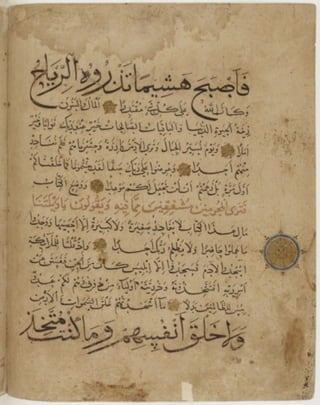 فَاَصْبَحَ هَشِيمًا تَذْرُوهُ الرِّيَاحُ
وَكَانَ اللهُ عَلَى كُلِّ شَيْءٍ مُقْتَدِرًا اَلْمَالُ وَالْبَنُونَ
زِينَةُ الْحَيوةِ الدُّنْيَا وَالْبَاقِيَاتُ الصَّالِحَاتُ خَيْرٌ عِنْدَ رَبِّكَ ثَوَابًا وَخَيْرٌ
اَمَلًا وَيَوْمَ نُسَيِّرُ الْجِبَالَ وَتَرَى الْاَرْضَ بَارِزَةً وَحَشَرْنَاهُمْ فَلَمْ نُغَادِرْ
مِنْهُمْ اَحَدًا وَعُرِضُوا عَلَى رَبِّكَ صَفًّا لَقَدْ جِئْتُمُونَا كَمَا خَلَقْنَاكُمْ
اَوَّلَ مَرَّةٍ بَلْ زَعَمْتُمْ اَلَّنْ نَجْعَلَ لَكُمْ مَوْعِدًا وَوُضِعَ الْكِتَابُ
فَتَرَى الْمُجْرِمِينَ مُشْفِقِينَ مِمَّا فِيهِ وَيَقُولُونَ يَا وَيْلَتَنَا
مَالِ هٰذَا الْكِتَابِ لَا يُغَادِرُ صَغِيرَةً وَلَا كَبِيرَةً اِلَّا اَحْصَيهَا وَوَجَدُوا
مَا عَمِلُوا حَاضِرًا وَلَا يَظْلِمُ رَبُّكَ اَحَدًا وَاِذْ قُلْنَا لِلْمَلَائِكَةِ
اسْجُدُوا لِاٰدَمَ فَسَجَدُوا اِلَّا اِبْلِيسَ كَانَ مِنَ الْجِنِّ فَفَسَقَ عَنْ
اَمْرِ رَبِّهِ اَفَتَتَّخِذُونَهُ وَذُرِّيَّتَهُ اَوْلِيَاءَ مِنْ دُونِي وَهُمْ لَكُمْ عَدُوٌّ
بِئْسَ لِلظَّالِمِينَ بَدَلًا مَا اَشْهَدْتُهُمْ خَلْقَ السَّمٰوَاتِ وَالْاَرْضِ
وَلَا خَلْقَ اَنْفُسِهِمْ وَمَا كُنْتُ مُتَّخِذَ